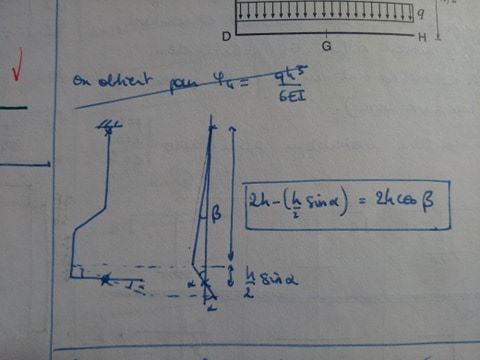 q
D
G
H
on obtient pour φ₄ = qh³/6EI
β
2h - (h/2 sin α) = 2h cos β
h/2 sin α
α
α